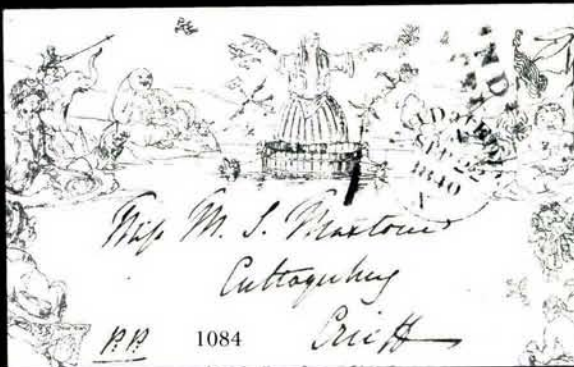 SP 22
1840
Miss M. S. Maxtone
Cultoquhey
Crieff
P.P. 1084